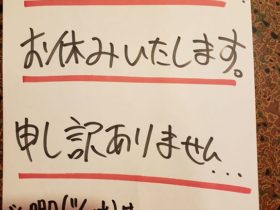 お休みいたします。
申し訳ありません...